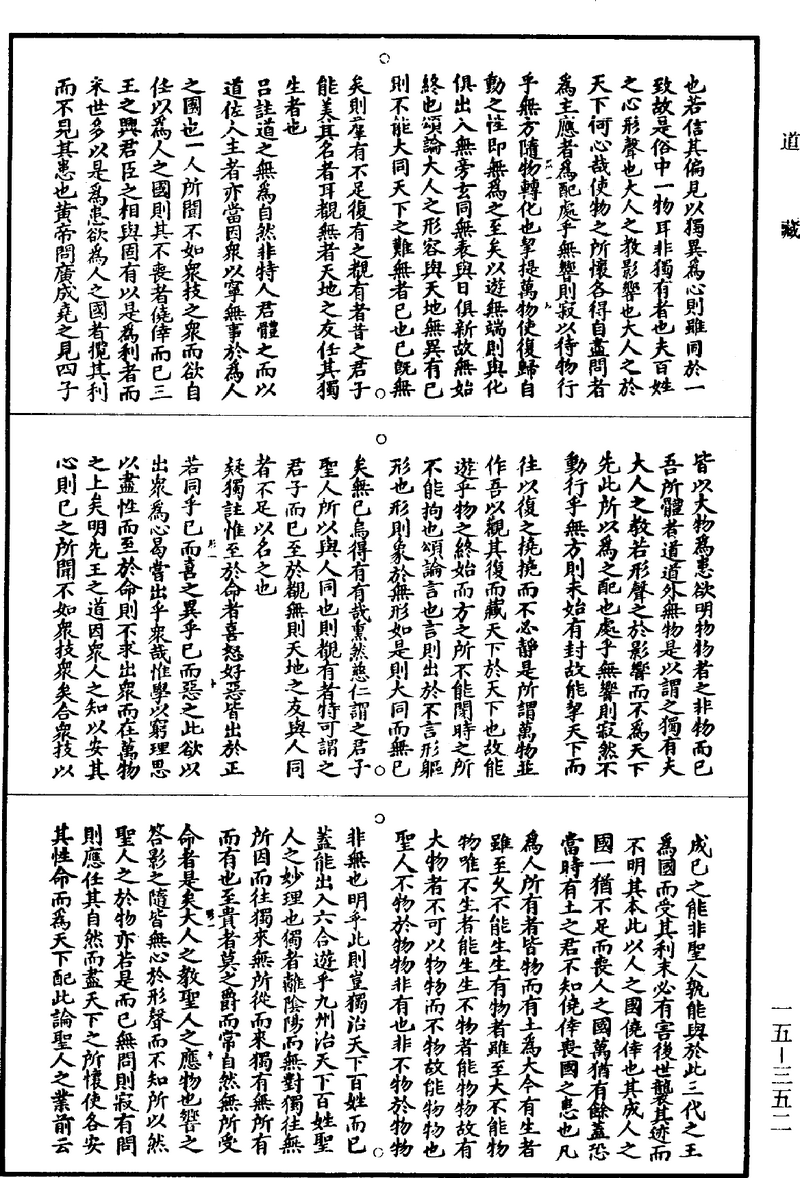 道藏
也若信其偏見以獨異為心則雖同於一
致故是俗中一物耳非獨有者也夫百姓
之心形聲也大人之教影響也大人之於
天下何心哉使物之所懷各得自盡問者
為主應者為配處乎無響則寂以待物行
乎無方隨物轉化也挈提萬物使復歸自
動之性即無為之至矣以遊無端則與化
俱出入無旁玄同無表與日俱新故無始
終也頌論大人之形容與天地無異有己
則不能大同天下之難無者己也己既無
矣則羣有不足復有之覩有者昔之君子
能美其名者耳覩無者天地之友任其獨
生者也
呂註道之無為自然非特人君體之而以
道佐人主者亦當因衆以寧無事於為人
之國也一人所聞不如衆技之衆而欲自
任以為人之國則其不喪者僥倖而已三
王之興君臣之相與固有以是為利者而
末世多以是為患欲為人之國者攬其利
而不見其患也黃帝問廣成堯之見四子
皆以大物為患欲明物物者之非物而已
吾所體者道道外無物是以謂之獨有夫
大人之教若形聲之於影響而不為天下
先此所以為之配也處乎無響則寂然不
動行乎無方則未始有封故能挈天下而
往以復之撓撓而不必靜是所謂萬物並
作吾以觀其復而藏天下於天下也故能
遊乎物之終始而方之所不能閡時之所
不能拘也頌論言也言則出於不言形軀
形也形則象於無形如是則大同而無已
矣無已烏得有有哉熏然慈仁謂之君子
聖人所以與人同也則覩有者特可謂之
君子而已至於覩無則天地之友與人同
者不足以名之也
疑獨註惟至於命者喜怒好惡皆出於正
若同乎己而喜之異乎己而惡之此欲以
出衆為心曷嘗出乎衆哉惟學以窮理思
以盡性而至於命則不求出衆而在萬物
之上矣明先王之道因衆人之知以安其
心則己之所聞不如衆技衆矣合衆技以
成己之能非聖人孰能與於此三代之王
為國而受其利末必有害後世襲其迹而
不明其本此以人之國僥倖也其成人之
國一猶不足而喪人之國萬猶有餘蓋恐
當時有土之君不知僥倖喪國之患也凡
為人所有者皆物而有土為大今有生者
雖至久不能生生有物者雖至大不能物
物唯不生者能生生不物者能物物故有
大物者不可以物物而不物故能物物也
聖人不物於物物非有也非不物於物物
非無也明乎此則豈獨治天下百姓而已
蓋能出入六合遊乎九州治天下百姓聖
人之妙理也獨者離陰陽而無對獨往無
所因而往獨來無所從而來獨有無所有
而有也至貴者莫之爵而常自然無所受
命者是矣大人之教聖人之應物也響之
答影之隨皆無心於形聲而不知所以然
聖人之於物亦若是而已無問則寂有問
則應任其自然而盡天下之所懷使各安
其性命而為天下配此論聖人之業前云
一五－三五二